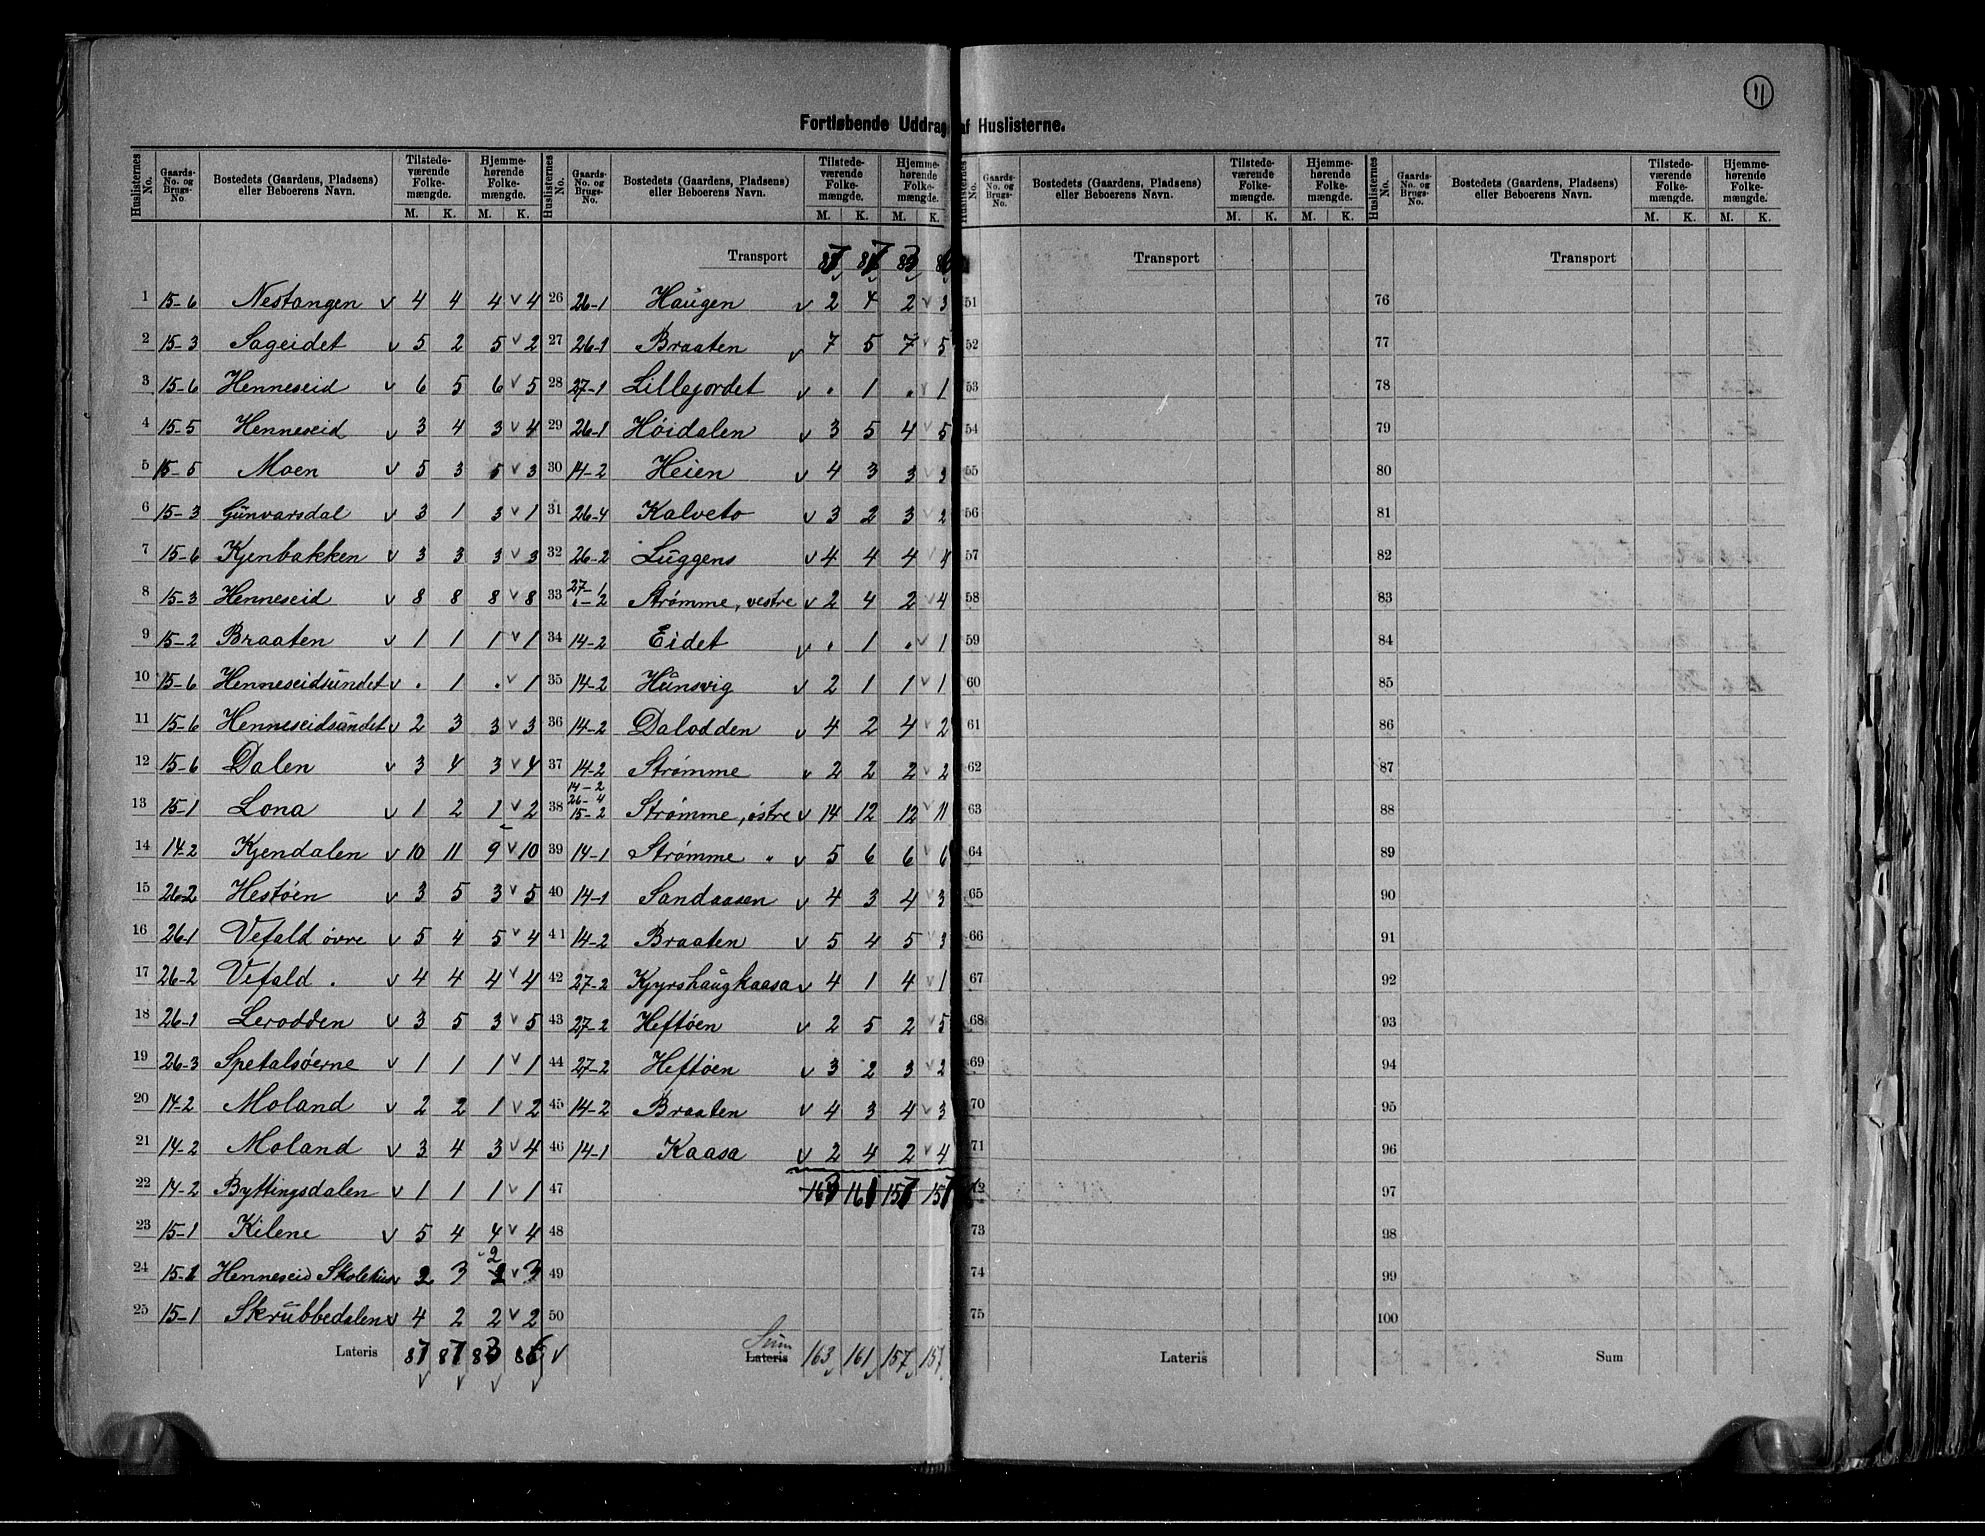 11
Fortløbende Uddrag af Huslisterne.
Huslisternes No. Gaards-No. og Brugs-No. Bostedets (Gaardens, Pladsens) eller Beboerens Navn. Tilstedeværende Folkemængde. M. K. Hjemmehørende Folkemængde. M. K.
1 15-6 Nestangen v 4 4 4 v 4
2 15-3 Sageidet v 5 2 5 v 2
3 15-6 Henneseid v 6 5 6 v 5
4 15-5 Henneseid v 3 4 3 v 4
5 15-5 Moen v 5 3 5 v 3
6 15-3 Gunvarsdal v 3 1 3 v 1
7 15-6 Kjenbakken v 3 3 3 v 3
8 15-3 Henneseid v 8 8 8 v 8
9 15-2 Braaten v 1 1 1 v 1
10 15-6 Henneseidsundet v . 1 . v 1
11 15-6 Henneseidsundet v 2 3 3 v 3
12 15-6 Dalen v 3 4 3 v 4
13 15-1 Lona v 1 2 1 v 2
14 14-2 Kjendalen v 10 11 9 v 10
15 26-2 Hestöen v 3 5 3 v 5
16 26-1 Vefald övre v 5 4 5 v 4
17 26-2 Vefald . v 4 4 4 v 4
18 26-1 Lerodden v 3 5 3 v 5
19 26-3 Spetalsöerne v 1 1 1 v 1
20 14-2 Moland v 2 2 1 v 2
21 14-2 Moland v 3 4 3 v 4
22 14-2 Byttingsdalen v 1 1 1 v 1
23 15-1 Kilene v 5 4 4 v 4
24 15-1 Henneseid Skolehus v 2 3 2 v 3
25 15-1 Skrubbedalen v 4 2 2 v 2
Lateris 87 87 83 86 v
Huslisternes No. Gaards-No. og Brugs-No. Bostedets (Gaardens, Pladsens) eller Beboerens Navn. Tilstedeværende Folkemængde. M. K. Hjemmehørende Folkemængde. M. K.
Transport 87 87 83 86
26 26-1 Haugen v 2 4 2 v 3
27 26-1 Braaten v 7 5 7 v 5
28 27-1 Lillejordet v . 1 . v 1
29 26-1 Höidalen v 3 5 4 v 5
30 14-2 Heien v 4 3 3 v 3
31 26-4 Kalveto v 3 2 3 v 2
32 26-2 Luggens v 4 4 4 v 4
33 27-1 "-2 Strømme, vestre v 2 4 2 v 4
34 14-2 Eidet v . 1 . v 1
35 14-2 Hunsvig v 2 1 1 v 1
36 14-2 Dalodden v 4 2 4 v 2
37 14-2 Strømme v 2 2 2 v 2
38 14-2 26-4 15-2 Strømme, östre v 14 12 12 v 11
39 14-1 Strømme " v 5 6 6 v 6
40 14-1 Sandaasen v 4 3 4 v 3
41 14-2 Braaten v 5 4 5 v 3
42 27-2 Kjyrshaugkaasa v 4 1 4 v 1
43 27-2 Heftöen v 2 5 2 v 5
44 27-2 Heftöen v 3 2 3 v 2
45 14-2 Braaten v 4 3 4 v 3
46 14-1 Kaasa v 2 4 2 v 4
47 163 161 157 157
48
49
50
Sum
Lateris 163 161 157 157
Huslisternes No. Gaards-No. og Brugs-No. Bostedets (Gaardens, Pladsens) eller Beboerens Navn. Tilstedeværende Folkemængde. M. K. Hjemmehørende Folkemængde. M. K.
Transport
51
52
53
54
55
56
57
58
59
60
61
62
63
64
65
66
67
68
69
70
71
72
73
74
75
Lateris
Huslisternes No. Gaards-No. og Brugs-No. Bostedets (Gaardens, Pladsens) eller Beboerens Navn. Tilstedeværende Folkemængde. M. K. Hjemmehørende Folkemængde. M. K.
Transport
76
77
78
79
80
81
82
83
84
85
86
87
88
89
90
91
92
93
94
95
96
97
98
99
100
Sum